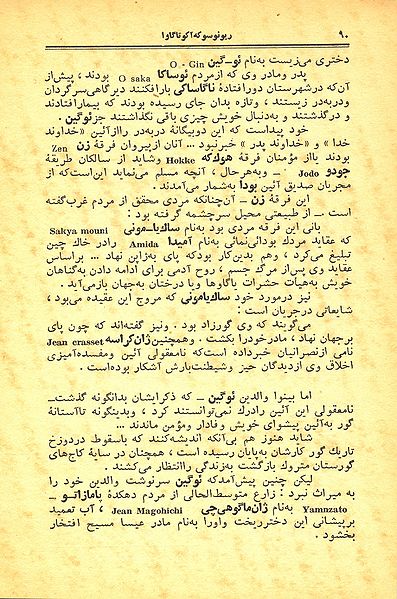 ۹۰
ریونوسوکه آکوتاگاوا
دختری می‌زیست به‌نام ئو-گین O - Gin
پدر ومادر وی که ازمردم ئوساکا O saka بودند ، پیش‌از
آن‌که درشهرستان دورافتادهٔ ناگاساکی بارافکنند دیرگاهی‌سرگردان
ودربه‌در زیستند ، وتازه بدان جای رسیده بودند که بیمارافتادند
و درگذشتند و به‌دنبال خویش چیزی باقی نگذاشتند جزئوگین .
خود پیداست که این دوبیگانهٔ دربه‌در رااز آئین «خداوند
خدا » و «خداوند پدر » خبر نبود ... آنان از پیروان فرقهٔ زن Zen
بودند یااز مؤمنان فرقهٔ هوک‌که Hokke وشاید از سالکان طریقهٔ
جودو Jodo ــ وبه‌هرحال ، آنچه مسلم می‌نماید این‌است‌که از
مجریان صدیق آئین بودا به‌شمار می‌آمدند .
این فرقهٔ زن ــ آن‌چنانکه مردی محقق از مردم غرب‌گفته
است ــ از طبیعتی محیل سرچشمه گرفته بود :
بانی این فرقه مردی بود به‌نام ساک‌یا-مونی Sakya mouni
که عقاید مردك بودائی‌نمائی به‌نام آمیدا Amida رادر خاك چین
تبلیغ می‌کرد ، وهم بدین‌کار بودکه پای به‌ژاپن نهاد ... براساس
عقاید وی پس‌از مرگ جسم ، روح آدمی برای ادامه دادن به‌گناهان
خویش به‌هیأت حشرات یاگاوها ویا درختان به‌جهان بازمی‌آید .
نیز درمورد خود ساک‌یامونی که مروج این عقیده می‌بود ،
شایعاتی درجریان است :
می‌گویند که وی گورزاد بود . ونیز گفته‌اند که چون پای
برجهان نهاد ، مادرخودرا بکشت . وهمچنین ژان‌کراسه Jean crasset
نامی ازنصرانیان خبرداده است‌که نامعقولی آئین ومفسده‌آمیزی
اخلاق وی ازدیدگان حیز وشیطنت‌بارش آشکار بوده‌است .
اما بینوا والدین ئوگین ــ که ذکرایشان بدانگونه گذشت‌ــ
نامعقولی این آئین رادرك نمی‌توانستند کرد ، وبدینگونه تاآستانهٔ
گور به‌آئین پیشوای خویش وفادار ومؤمن ماندند ...
شاید هنوز هم بی‌آنکه اندیشه‌کنند که باسقوط دردوزخ
تاریك گور کارشان به‌پایان رسیده است ، همچنان در سایهٔ کاج‌های
گورستان متروك بازگشت به‌زندگی راانتظار می‌کشند .
لیکن چنین پیش‌آمدکه ئوگین سرنوشت والدین خود را
به میراث نبرد : زارع متوسط‌الحالی از مردم دهکدهٔ یامازاتو ــ
Yamnzato به‌نام ژان‌ماگوهی‌چی Jean Magohichi ، آب تعمید
برپیشانی این دخترریخت واورا به‌نام مادر عیسا مسیح افتخار
بخشود .